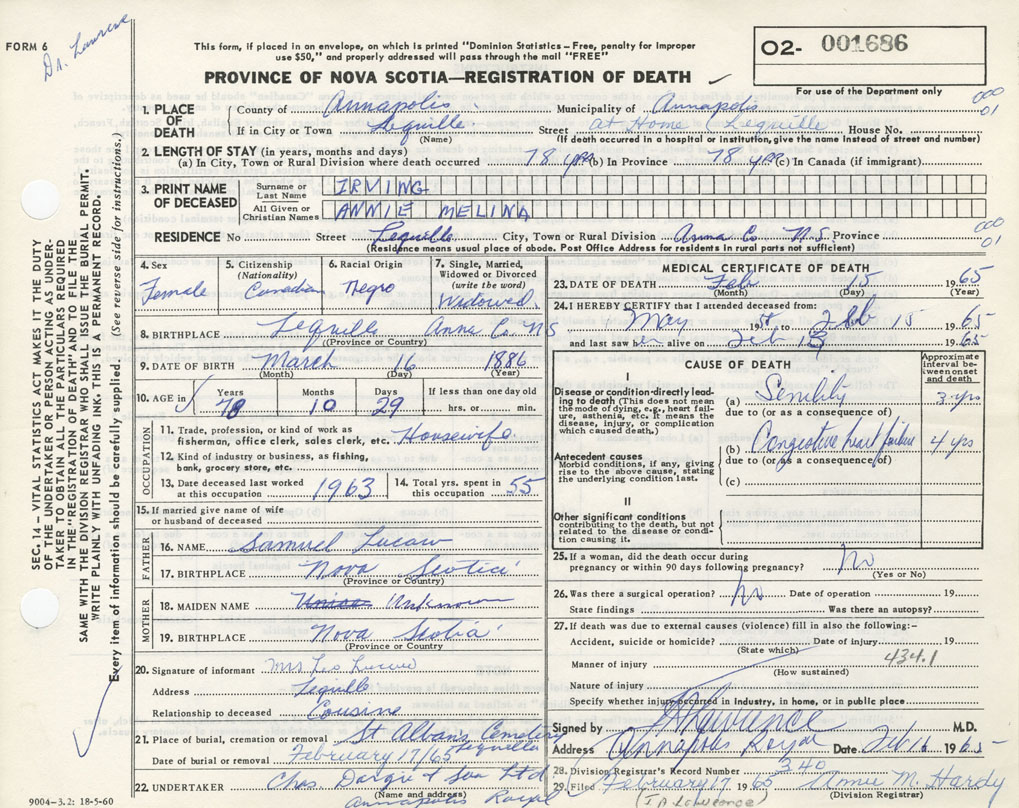 FORM 6
Dr. Lawrence
This form, if placed in an envelope, on which is printed "Dominion Statistics – Free, penalty for improper
use $50," and properly addressed will pass through the mail "FREE"
PROVINCE OF NOVA SCOTIA—REGISTRATION OF DEATH
02- 001686
For use of the Department only
SEC. 14 – VITAL STATISTICS ACT MAKES IT THE DUTY
OF THE UNDERTAKER OR PERSON ACTING AS UNDER-
TAKER TO OBTAIN ALL THE PARTICULARS REQUIRED
IN THE "REGISTRATION OF DEATH" AND TO FILE THE
SAME WITH THE DIVISION REGISTRAR WHO SHALL ISSUE THE BURIAL PERMIT.
WRITE PLAINLY WITH UNFADING INK. THIS IS A PERMANENT RECORD.
Every item of information should be carefully supplied. (See reverse side for instructions.)
1. PLACE OF DEATH
County of Annapolis Municipality of Annapolis 000 01
If in City or Town Lequille Street at Home (Lequille House No.
(Name) (If death occurred in hospital or institution, give name instead of street and number)
2. LENGTH OF STAY (in years, months and days)
(a) In City, Town or Rural Division where death occurred 78 yrs (b) In Province 78 yrs (c) In Canada (if immigrant)
3. PRINT NAME OF DECEASED
Surname or Last Name IRVING
All Given or Christian Names ANNIE MELINA
RESIDENCE No Street Lequille City, Town or Rural Division Anna Co N.S. Province 000 01
(Residence means usual place of abode. Post Office Address for residents in rural parts not sufficient)
4. Sex Female
5. Citizenship (Nationality) Canadian
6. Racial Origin Negro
7. Single, Married, Widowed or Divorced (write the word) Widowed
8. BIRTHPLACE Lequille Anna Co. NS
(Province or Country)
9. DATE OF BIRTH March 16 1886
(Month) (Day) (Year)
10. AGE in Years 78 Months 10 Days 29 If less than one day old hrs. or min.
OCCUPATION
11. Trade, profession, or kind of work as fisherman, office clerk, sales clerk, etc. Housewife
12. Kind of industry or business, as fishing, bank, grocery store, etc.
13. Date deceased last worked at this occupation 1963
14. Total yrs. spent in this occupation 55
15. If married give name of wife or husband of deceased
FATHER
16. NAME Samuel Lucaw
17. BIRTHPLACE Nova Scotia
(Province or Country)
MOTHER
18. MAIDEN NAME Unknown
19. BIRTHPLACE Nova Scotia
(Province or Country)
20. Signature of informant Mrs Leo Lucaw
Address Lequille
Relationship to deceased Cousine
21. Place of burial, cremation or removal St Albans Cemetery
Lequille
Date of burial or removal February 17/65
22. UNDERTAKER Chas. Dargie & Son Ltd
(Name and address)
Annapolis Royal
9004-3.2: 18-5-60
MEDICAL CERTIFICATE OF DEATH
23. DATE OF DEATH Feb 15 1965
(Month) (Day) (Year)
24. I HEREBY CERTIFY that I attended deceased from:
May 19 to Feb 15 1965
and last saw her alive on Feb 1965
CAUSE OF DEATH
Approximate interval between onset and death
I
Disease or condition directly leading to death (This does not mean the mode of dying, e.g., heart failure, asthenia, etc. It means the disease, injury, or complication which caused death.)
(a) Senility 3 yrs
due to (or as a consequence of)
Antecedent causes
Morbid conditions, if any, giving rise to the above cause, stating the underlying condition last.
(b) Congestive heart failure 4 yrs
due to (or as a consequence of)
(c)
II
Other significant conditions
contributing to the death, but not related to the disease or condition causing it.
25. If a woman, did the death occur during
pregnancy or within 90 days following pregnancy? No
(Yes or No)
26. Was there a surgical operation? No Date of operation 19
State findings Was there an autopsy?
27. If death was due to external causes (violence) fill in also the following:–
Accident, suicide or homicide? Date of injury 19
(State which)
Manner of injury 434.1
(How sustained)
Nature of injury
Specify whether injury occurred in Industry, in home, or in public place
Signed by Lawrance M.D.
Address Annapolis Royal Date Feb 16 1965
28. Division Registrar's Record Number 340
29. Filed February 17 1965 M. Hardy
(Division Registrar)